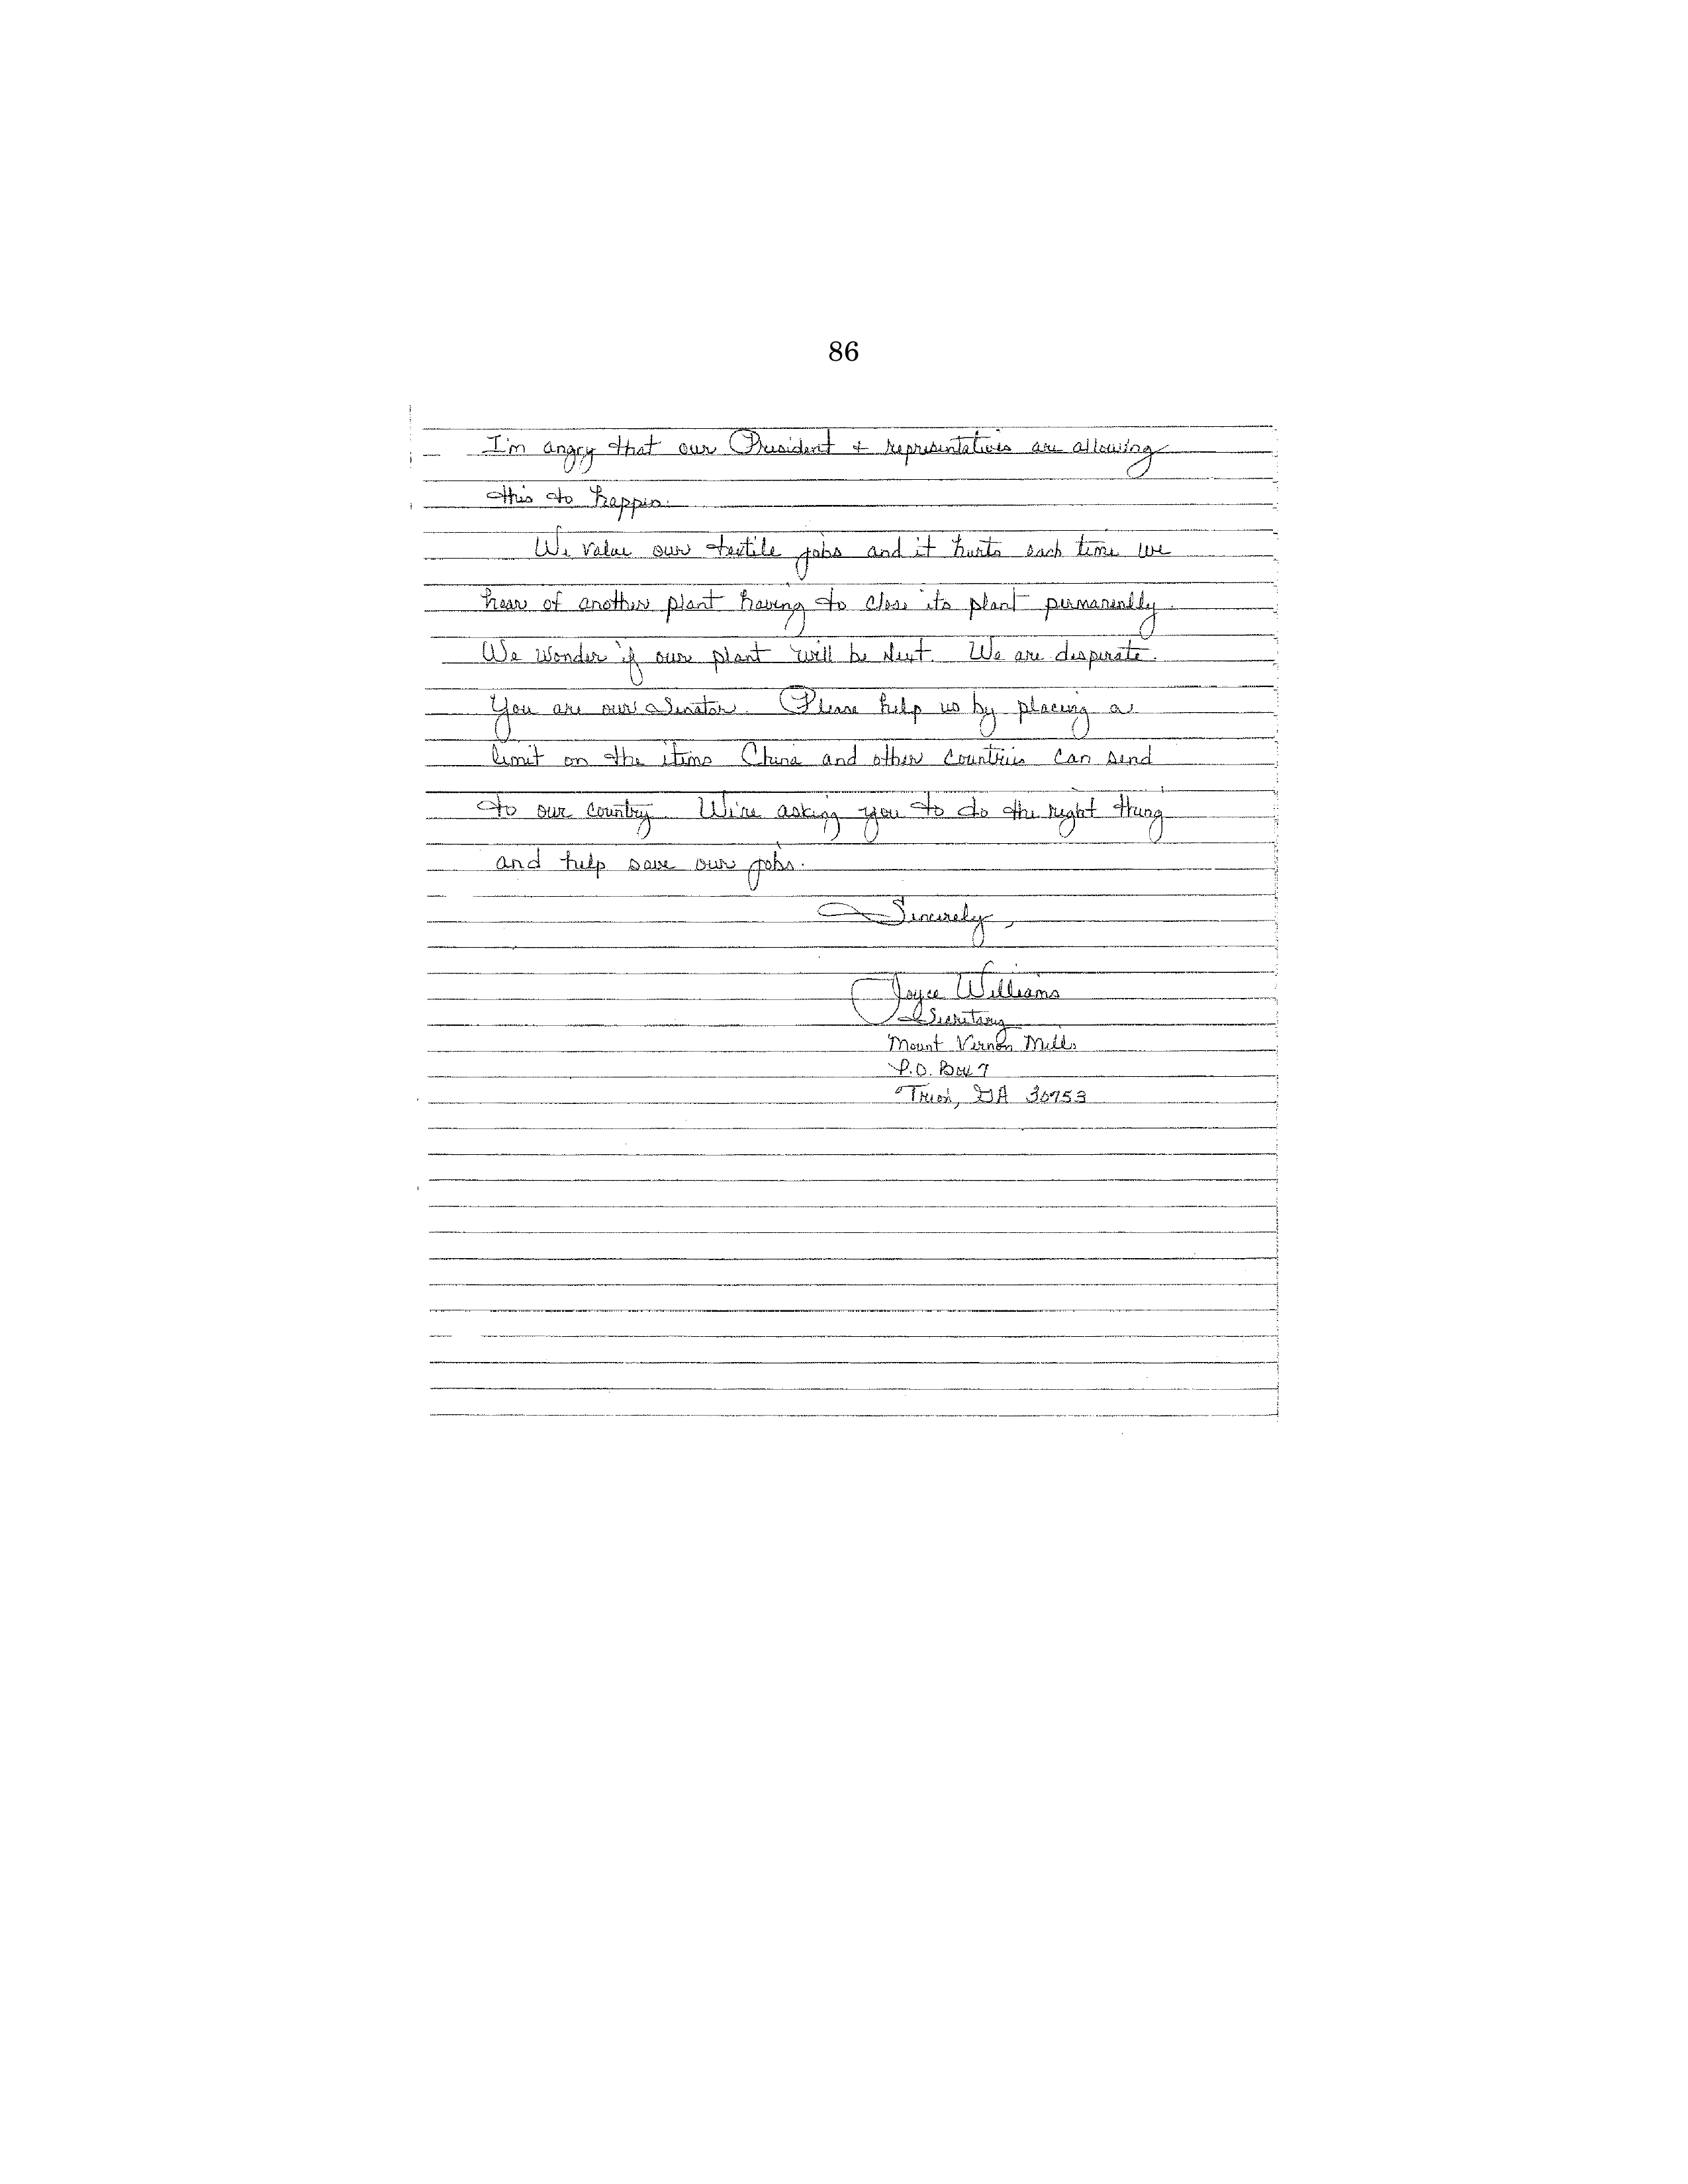 86
I'm angry that our President + representatives are allowing
this to happen.
We value our textile jobs and it hurts each time we
hear of another plant having to close its plant permanently.
We wonder if our plant will be next. We are desperate.
You are our Senator. Please help us by placing a
limit on the items China and other countries can send
to our country. We're asking you to do the right thing
and help save our jobs.
Sincerely,
Joyce Williams
Secretary
Mount Vernon Mills
P.O. Box 7
Trion, GA 30753